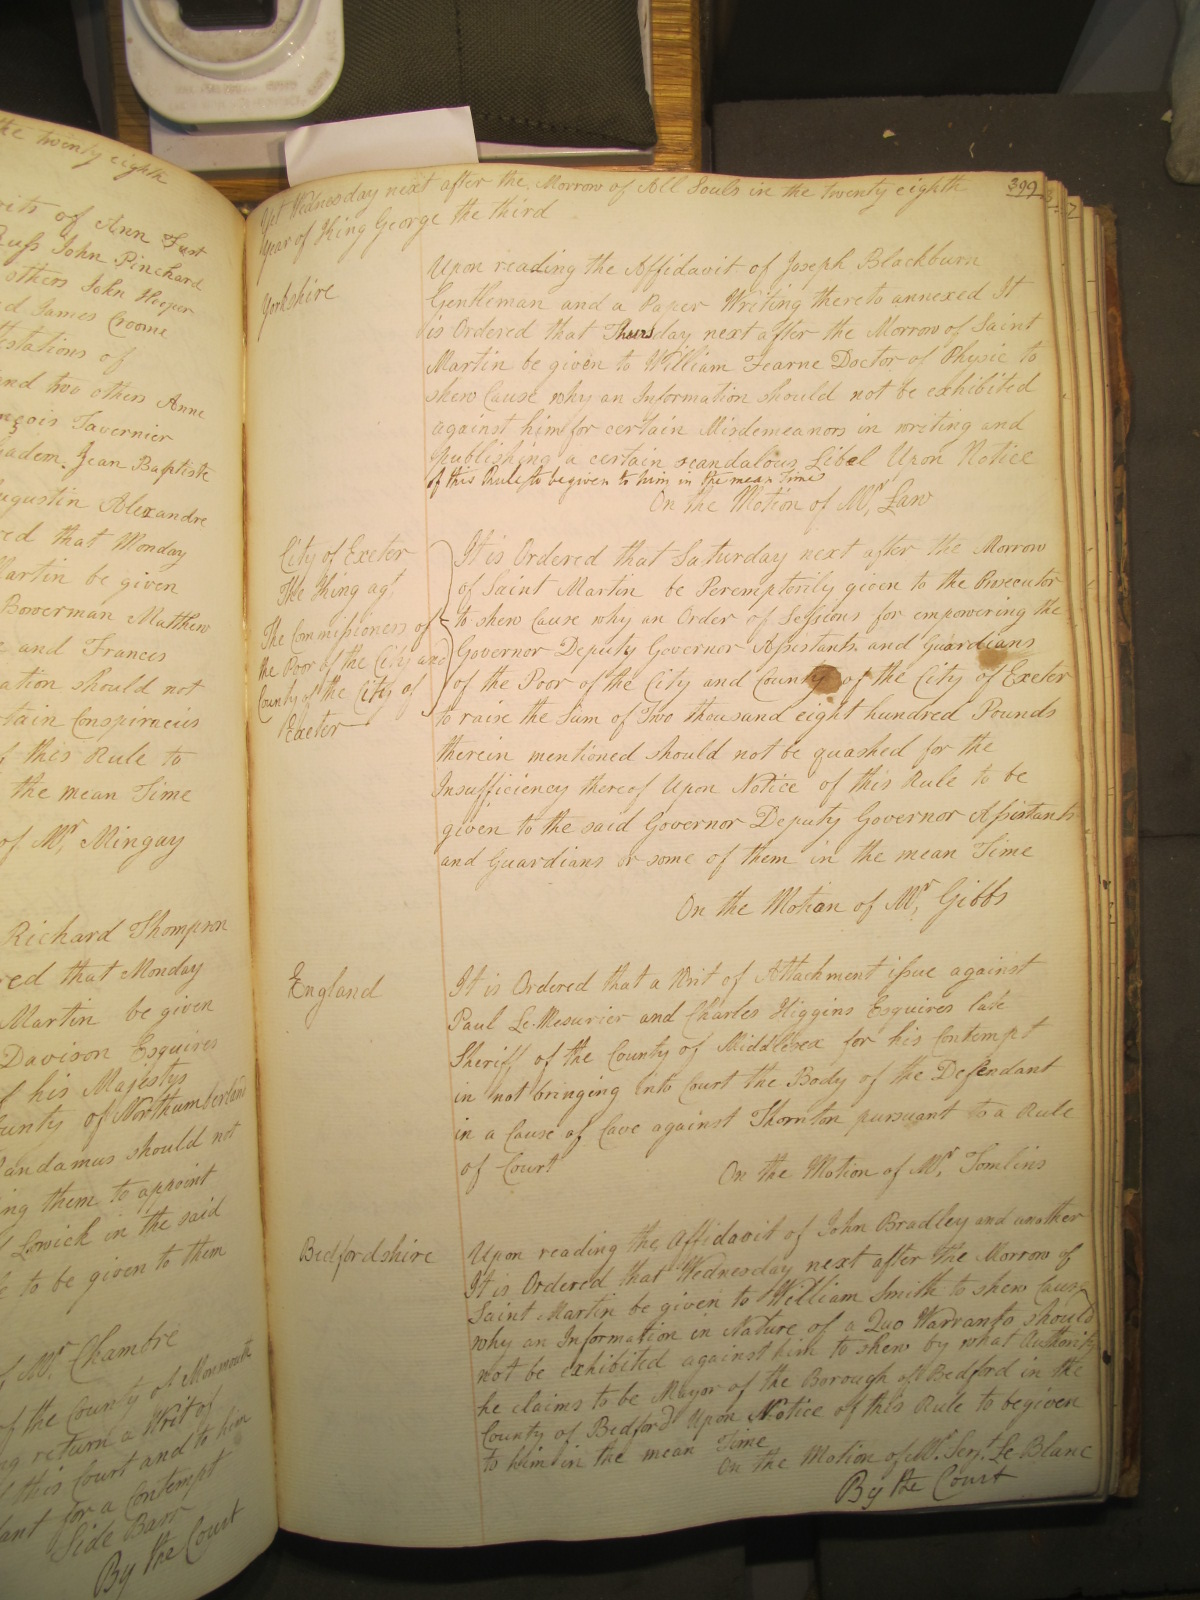 the twenty eighth
of Ann Fust
John Pinchard
others John Heeper
James Croome
of
and two others Anne
Tavernier
Jean Baptiste
Augustin Alexandre
that Monday
Martin be given
Bowerman Matthew
and Frances
should not
Conspiracies
this Rule to
the mean Time
of Mr. Mingay
Richard Thompson
that Monday
Martin be given
Davison Esquires
his Majestys
of Northumberland
Mandamus should not
them to appoint
Lowick in the said
to be given to them
Mr. Chambré
of the County of Monmouth
return a Writ of
this Court and to him
for a Contempt
Side Barr
By the Court
399
Yet Wednesday next after the Morrow of All Souls in the twenty eighth
Year of King George the third
Yorkshire
Upon reading the Affidavit of Joseph Blackburn
Gentleman and a Paper Writing thereto annexed It
is Ordered that Thursday next after the Morrow of Saint
Martin be given to William Fearne Doctor of Physic to
shew Cause why an Information should not be exhibited
against him for certain Misdemeanors in writing and
publishing a certain scandalous Libel Upon Notice
of this Rule to be given to him in the mean Time
On the Motion of Mr. Law
City of Exeter
The King agt.
The Commissioners of
the Poor of the City and
County of the City of
Exeter
It is Ordered that Saturday next after the Morrow
of Saint Martin be Peremptorily given to the Prosecutor
to shew Cause why an Order of Sessions for empowering the
Governor Deputy Governor Assistants and Guardians
of the Poor of the City and County of the City of Exeter
to raise the Sum of Two thousand eight hundred Pounds
therein mentioned should not be quashed for the
Insufficiency thereof Upon Notice of this Rule to be
given to the said Governor Deputy Governor Assistants
and Guardians or some of them in the mean Time
On the Motion of Mr. Gibbs
England
It is Ordered that a Writ of Attachment issue against
Paul Le Mesurier and Charles Higgins Esquires late
Sheriff of the County of Middlesex for his Contempt
in not bringing into Court the Body of the Defendant
in a Cause of Cave against Thornton pursuant to a Rule
of Court
On the Motion of Mr. Tomlins
Bedfordshire
Upon reading the Affidavit of John Bradley and another
It is Ordered that Wednesday next after the Morrow of
Saint Martin be given to William Smith to shew Cause
why an Information in Nature of a Quo Warranto should
not be exhibited against him to shew by what Authority
he claims to be Mayor of the Borough of Bedford in the
County of Bedford Upon Notice of this Rule to be given
to him in the mean Time
On the Motion of Mr. Serjt. Le Blanc
By the Court